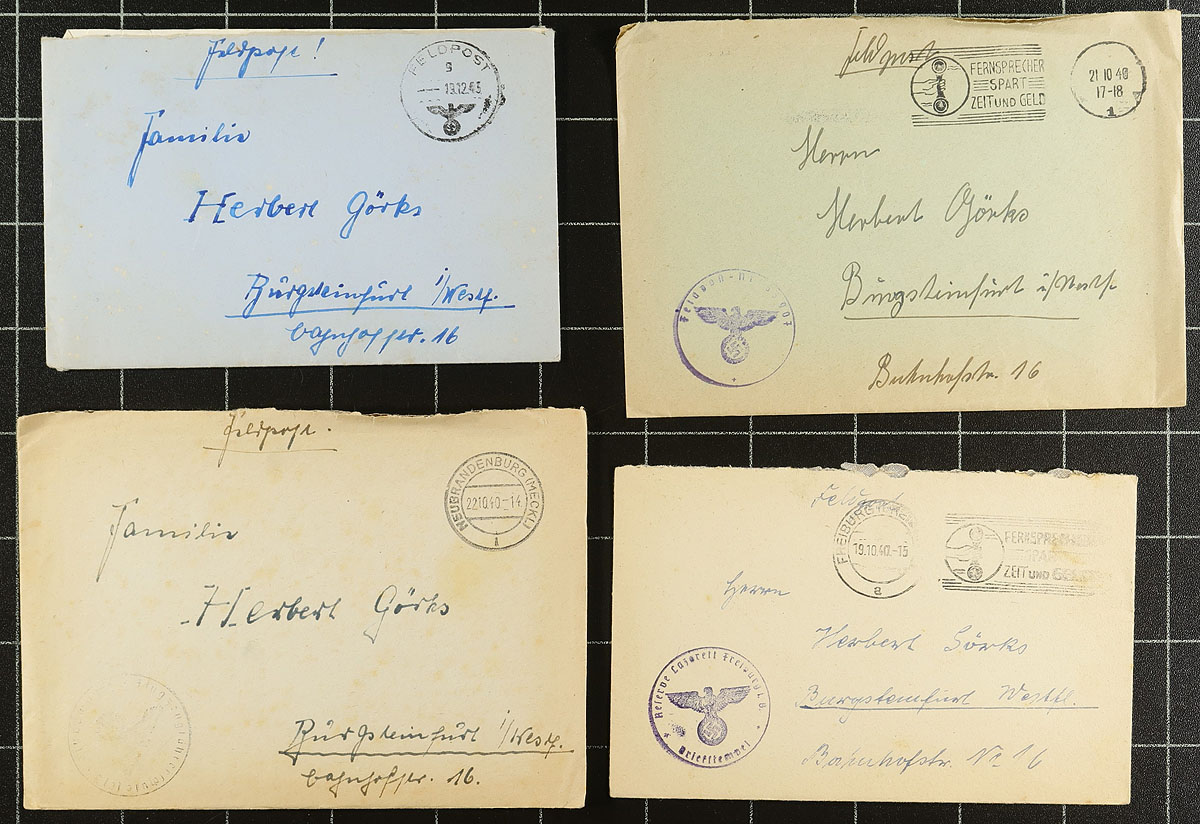 Feldpost!
FELDPOST
g
19.12.43
Familie
Herbert Görks
Burgsteinfurt i/Westf.
Bahnhofstr. 16
Feldpost
FERNSPRECHER
SPART
ZEIT UND GELD
21.10.40
17-18
1
Herrn
Herbert Görks
Burgsteinfurt i/Westf.
Bahnhofstr. 16
Feldpost.
NEUBRANDENBURG (MECKL)
22.10.40-14
1
Familie
Herbert Görks
Burgsteinfurt i/Westf.
Bahnhofstr. 16.
Feldpost
FREIBURG
19.10.40.-15
a
FERNSPRECHER
SPART
ZEIT UND GELD
Herrn
Herbert Görks
Burgsteinfurt Westfl.
Bahnhofstr. No 16
Reserve Lazarett Freiburg i. B.
Briefstempel